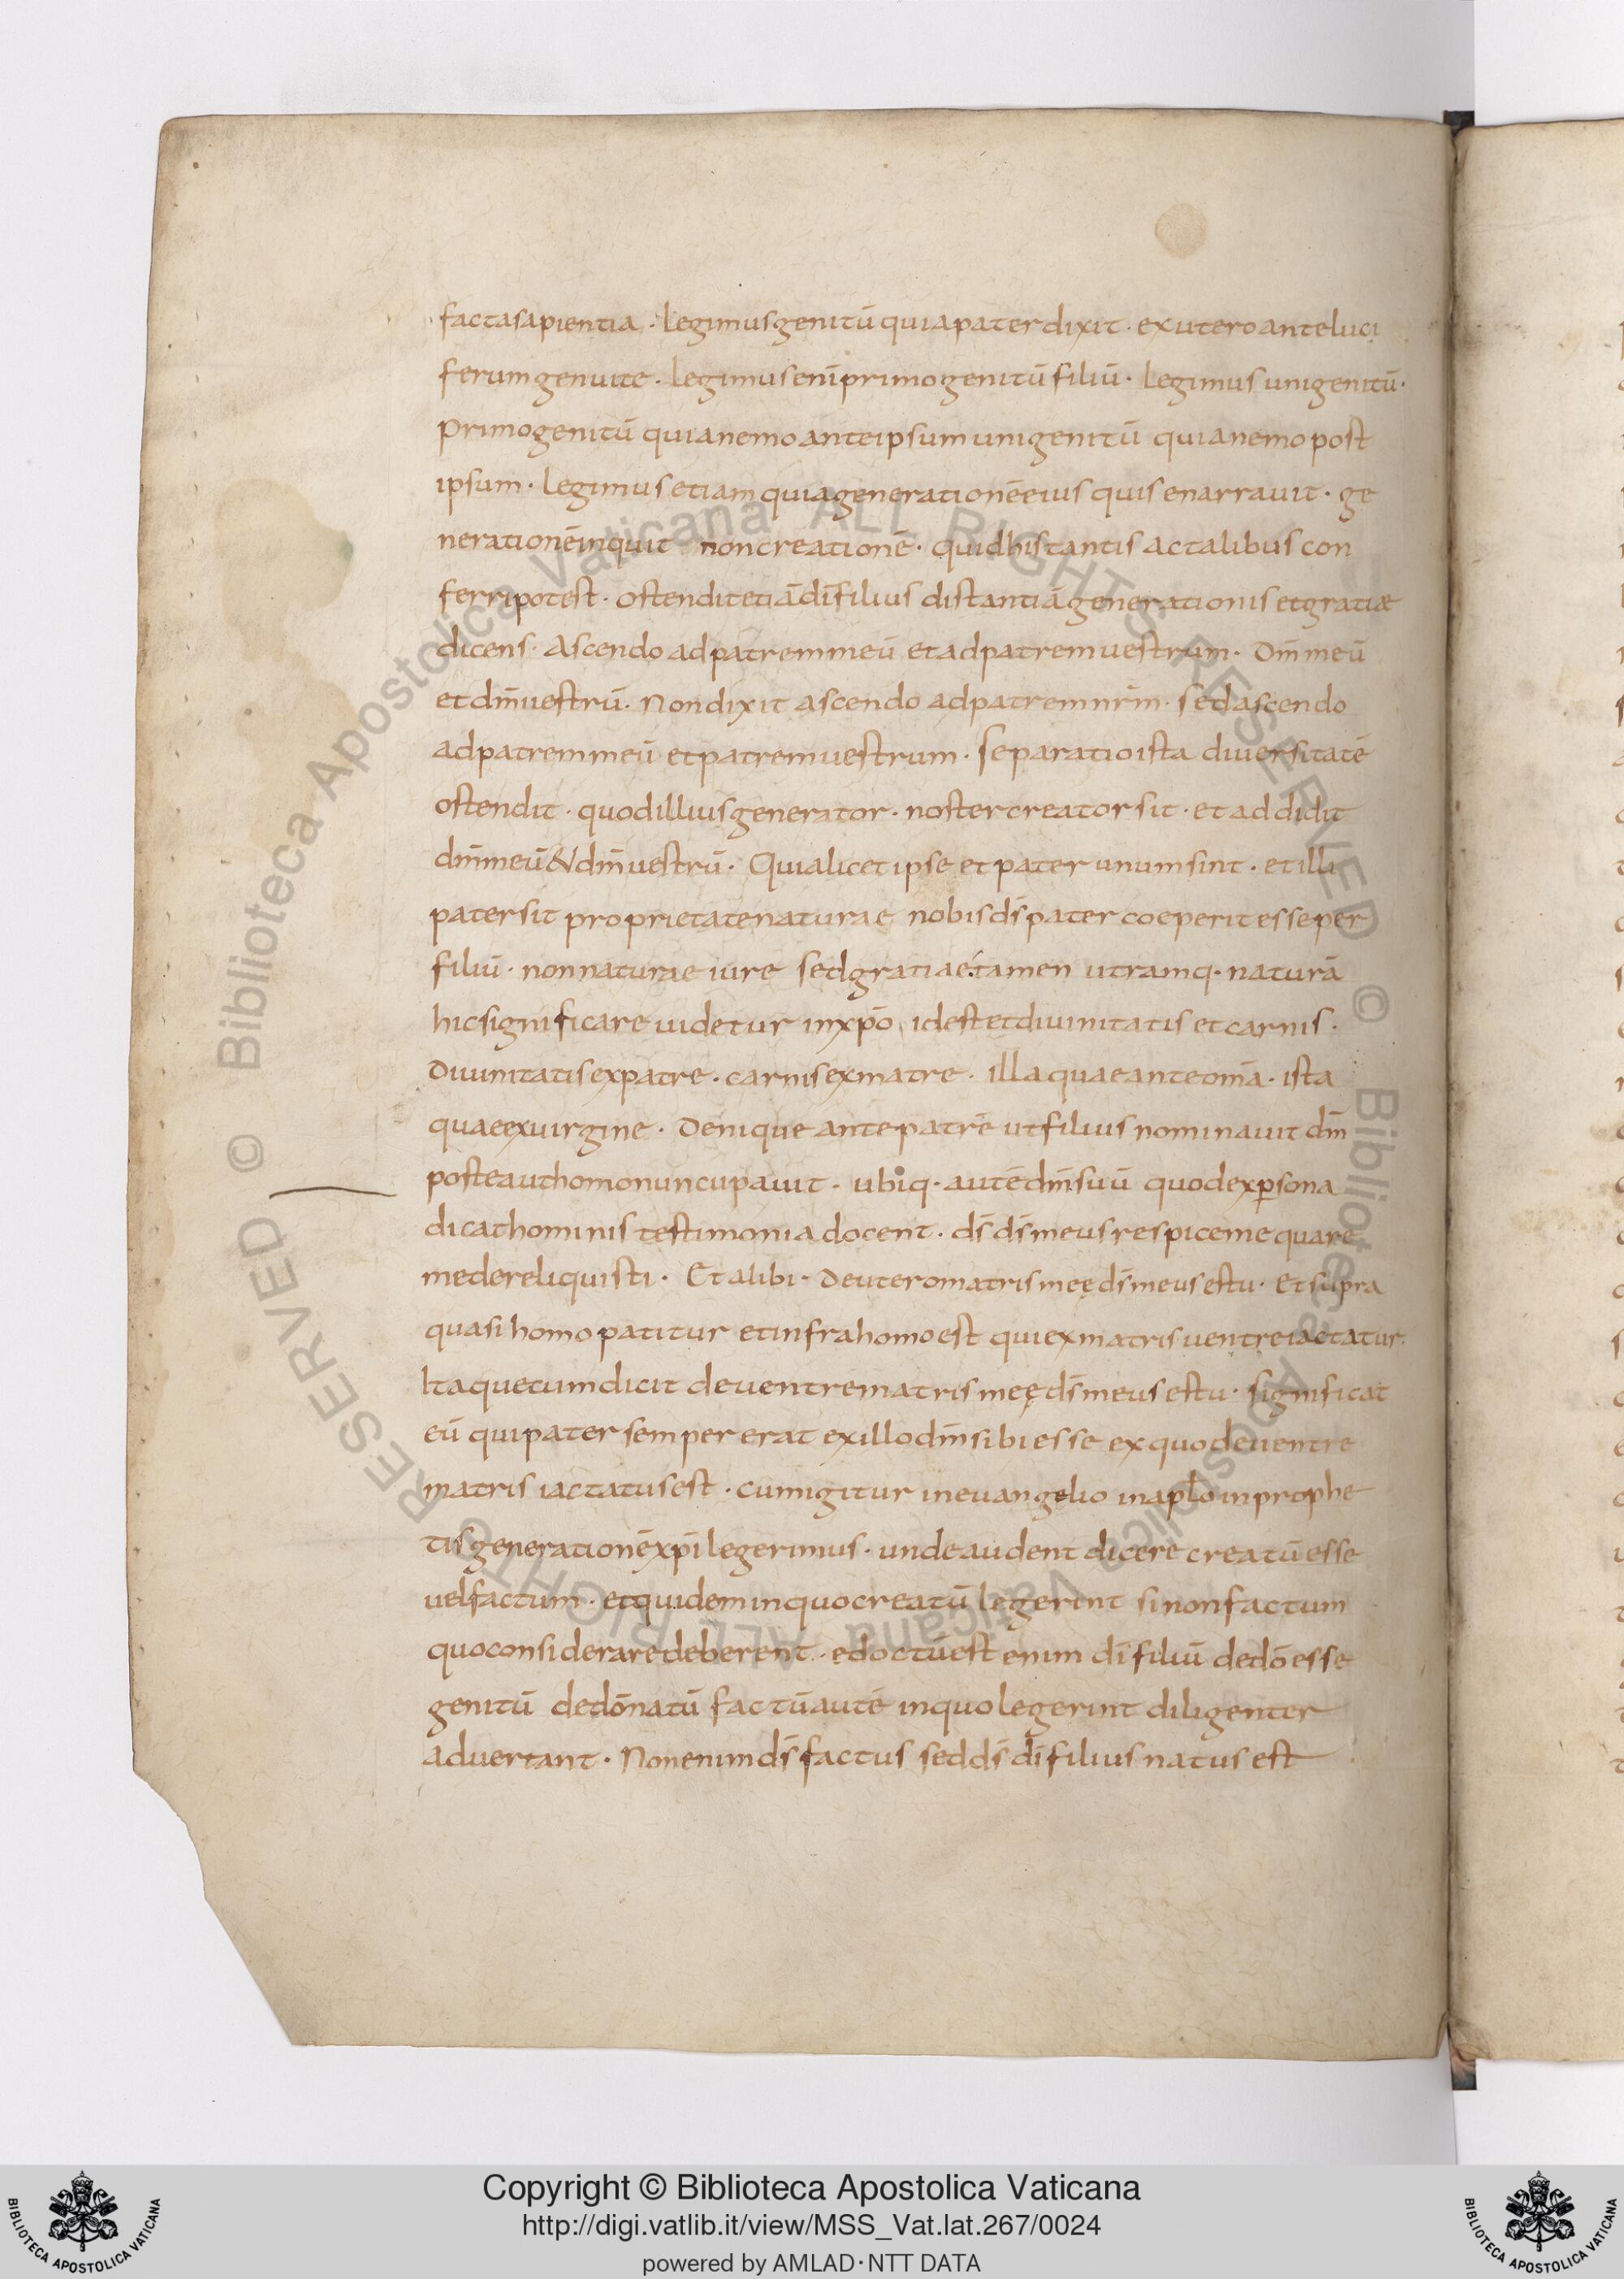 factasapientia · legimusgenitū quiapaterdixit · exuteroanteluci
ferumgenuite · legimusenīprimogenitūfiliū · legimus unigenitū ·
primogenitū quianemoanteipsum unigenitū quianemopost
ipsum · legimusetiam quiagenerationēeius quisenarrauit · ge
nerationēinquit noncreationē · quidhistantis actalibuscon
ferripotest · ostenditetiādīfilius distantiāgenerationis etgratiæ
dicens · ascendo adpatremmeū etadpatremuestrum · dm̄meū
etdm̄uestrū · Nondixit ascendo adpatremnrm̄ · sedascendo
adpatremmeū etpatremuestrum · separatioista diuersitatē
ostendit · quodilliusgenerator · nostercreatorsit · etaddidit
dm̄meū&dm̄uestrū · Quialicetipse etpater unumsint · etilli
patersit proprietatenaturae nobisds̄pater coeperitesseper
filiū · nonnaturae iure sedgratiaetamen utramq· naturā
hicsignificare uidetur inxpō idestetdiuinitatis etcarnis ·
Diuinitatisexpatre · carnisexmatre · illaquaeanteomā · ista
quaeexuirgine · Denique antepatrē utfilius nominauit dm̄
posteauthomonuncupauit · ubiq· autēdm̄suū quodexpsona
dicathominis testimonia docent · ds̄ds̄meusrespicemequare
medereliquisti · Et alibi · Deuteromatrismeęds̄meusestu · Etsupra
quasi homo patitur etinfrahomoest quiexmatrisuentreiactatur ·
Itaquecumdicit deuentrematrismeęds̄meusestu · significat
eū quipatersempererat exillodm̄sibiesse exquodeuentre
matris iactatusest · cumigitur ineuangelio inaplo inprophe
tisgenerationēxpīlegerimus · undeaudent dicere creatūesse
uelfactum · etquideminquocreatū legerint sinonfactum
quoconsideraredeberent · edoctūest enim dīfiliū dedōesse
genitū dedōnatū factūautē inquolegerint diligenter
aduertant · Nonenimds̄factus sedds̄dīfilius natus est
Copyright © Biblioteca Apostolica Vaticana
http://digi.vatlib.it/view/MSS_Vat.lat.267/0024
powered by AMLAD · NTT DATA
BIBLIOTECA APOSTOLICA VATICANA
BIBLIOTECA APOSTOLICA VATICANA
© Biblioteca Apostolica Vaticana ALL RIGHTS RESERVED
© Biblioteca Apostolica Vaticana ALL RIGHTS RESERVED